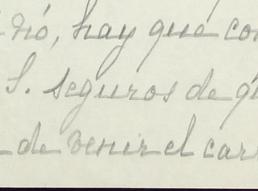 rió, hay que con
S. seguros de q
de venir el carr